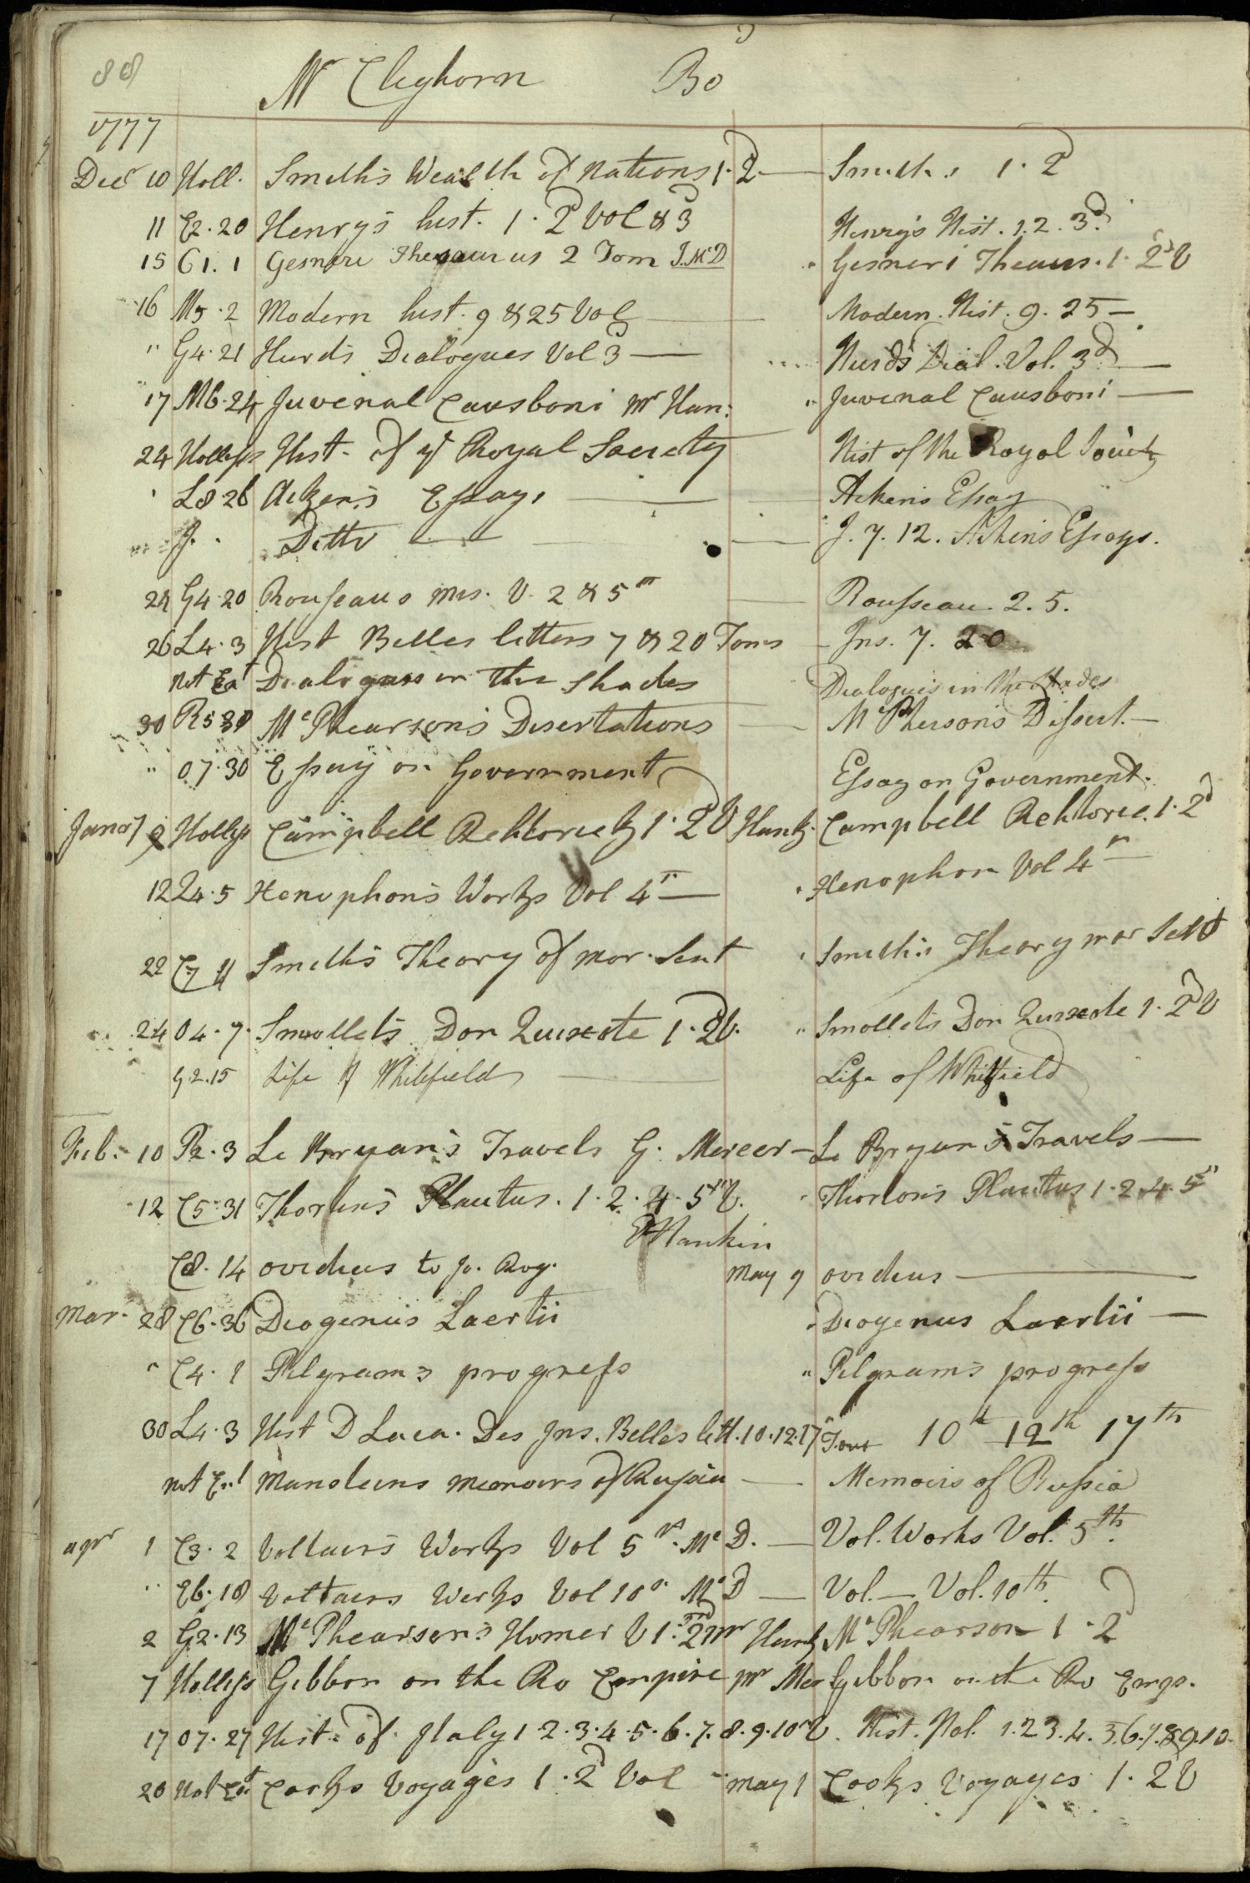 88 Mr Cleghorn Bo
1777
Decr 10 Holl. Smith's Wealth of Nations 1. 2d — Smith's 1. 2d
11 C2.20 Henry's hist. 1. 2d Vol & 3d Henry's Hist. 1.2.3d.
15 C1.1 Gesneri Thesaurus 2 Tom J.McD Gesneri Theaus. 1. 2d V
16 M5.2 Modern hist. 9 & 25 Vol — Modern. Hist. 9. 25 —
" G4.21 Hurd's Dialogues Vol 3d — Hurd's Dial. Vol. 3d —
17 M6.24 Juvenal Causboni Mr Han: Juvenal Causboni —
24 Holly's Hist. of ye Royal Society Hist of the Royal Society
L8 26 Aiken's Essays — Aikens Essay
J. Ditto — J. 7. 12. Aikens Essays.
24 G4.20 Rousseaus Mis. V. 2 & 5m — Rousseau. 2. 5.
26 L4.3 Hist Belles letters 7 & 20 Toms — Ins. 7. 20
not Eat Dialogues in the Shades Dialogues in the Shades
30 R5 30 McPhearson's Disertations — McPherson's Dissert. —
" O7.30 Essay on Government Essay on Government.
Janry 2 Hollys Campbell Rehtorick 1. 2d V Hank. Campbell Rehtoric. 1. 2d
12 Z4.5 Xenophon's Works Vol 4m — Xenophon Vol 4m —
22 C7 11 Smith's Theory of mor. Sent Smith's Theory mor Sent
24 O4.7. Smollet's Don Quixote 1. 2d V. Smollet's Don Quixote 1. 2d V
G2.15 Life of Whitefield — Life of Whitfield
Feb. 10 P2.3 Le Bryan's Travels G. Mercer — Le Bryan's Travels —
12 C5.31 Thorton's Plautus. 1. 2. 4. 5m V. Thorton's Plautus 1. 2. 4. 5m
P Hankin
C8.14 ovideus to Jo. Rog. May 9 ovideus —
Mar. 28 C6.36 Diogenius Laertii Diogenus Laertii —
" C4.1 Pilgram's progress " Pilgram's progress
30 L4.3 Hist D Laca. Des Ins. Belles lett. 10.12.17 Tom 10th 12th 17th
not Ent Mansteins memoirs of Russia — Memoirs of Russia
apr 1 C3.2 Voltairs Works Vol 5m. Mc D. — Vol. Works Vol. 5th.
" E6.18 Voltairs Works Vol 10m Mc D — Vol. — Vol. 10th.
2 G2.13 McPhearson's Homer V 1. 2d mr Hank McPhearson 1. 2d
7 Holly's Gibbon on the Ro Empire pr Mer Gibbon on the Ro Emp.
17 O7.27 Hist. of Italy 1.2.3.4.5.6.7.8.9.10m V. Hist. Ital. 1.2.3.4.5.6.7.8.9.10.
20 Not Ent Cooks Voyages 1. 2d Vol — May 1 Cooks Voyages 1. 2 V